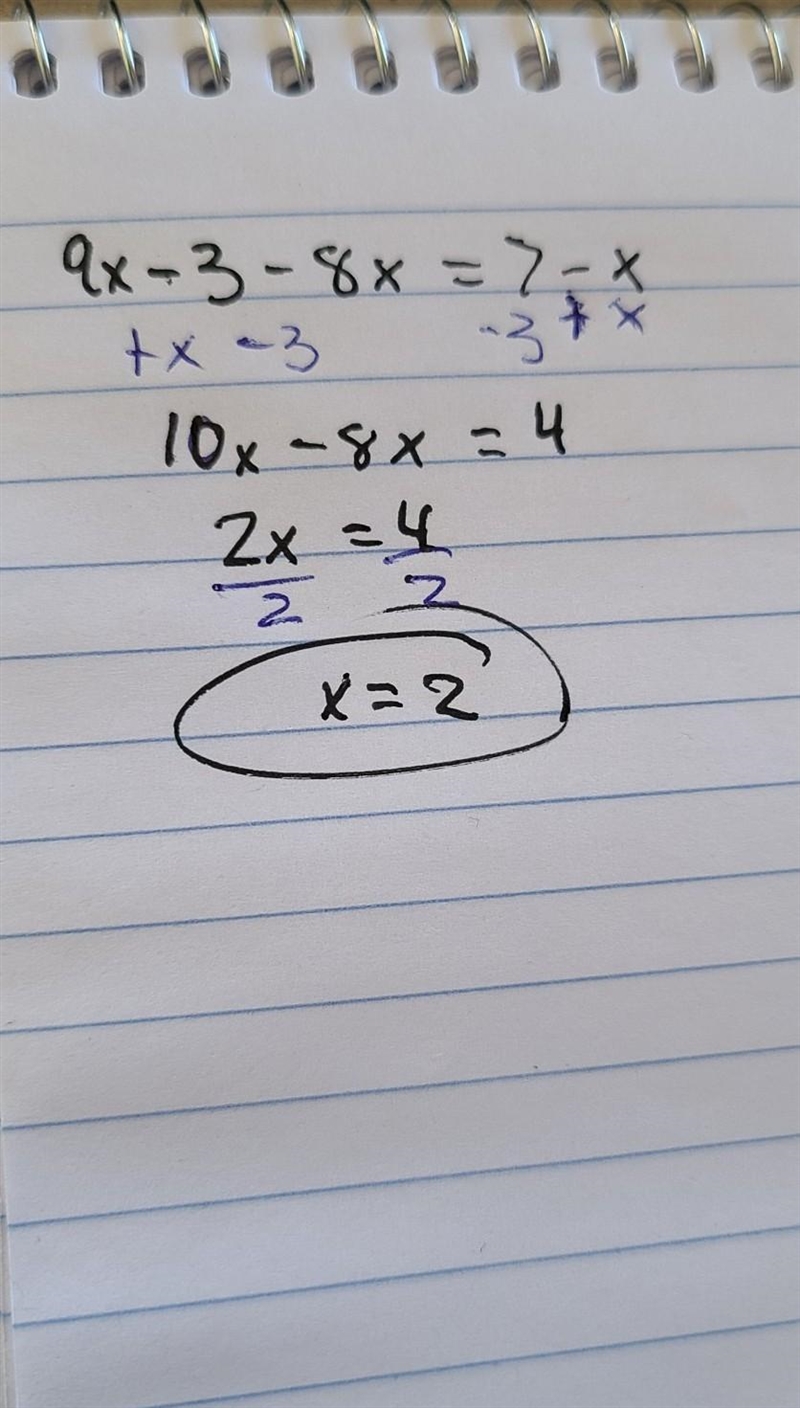 9x - 3 - 8x = 7 - x
+x - 3 -3 + x
10x - 8x = 4
2x = 4
2 2
x = 2